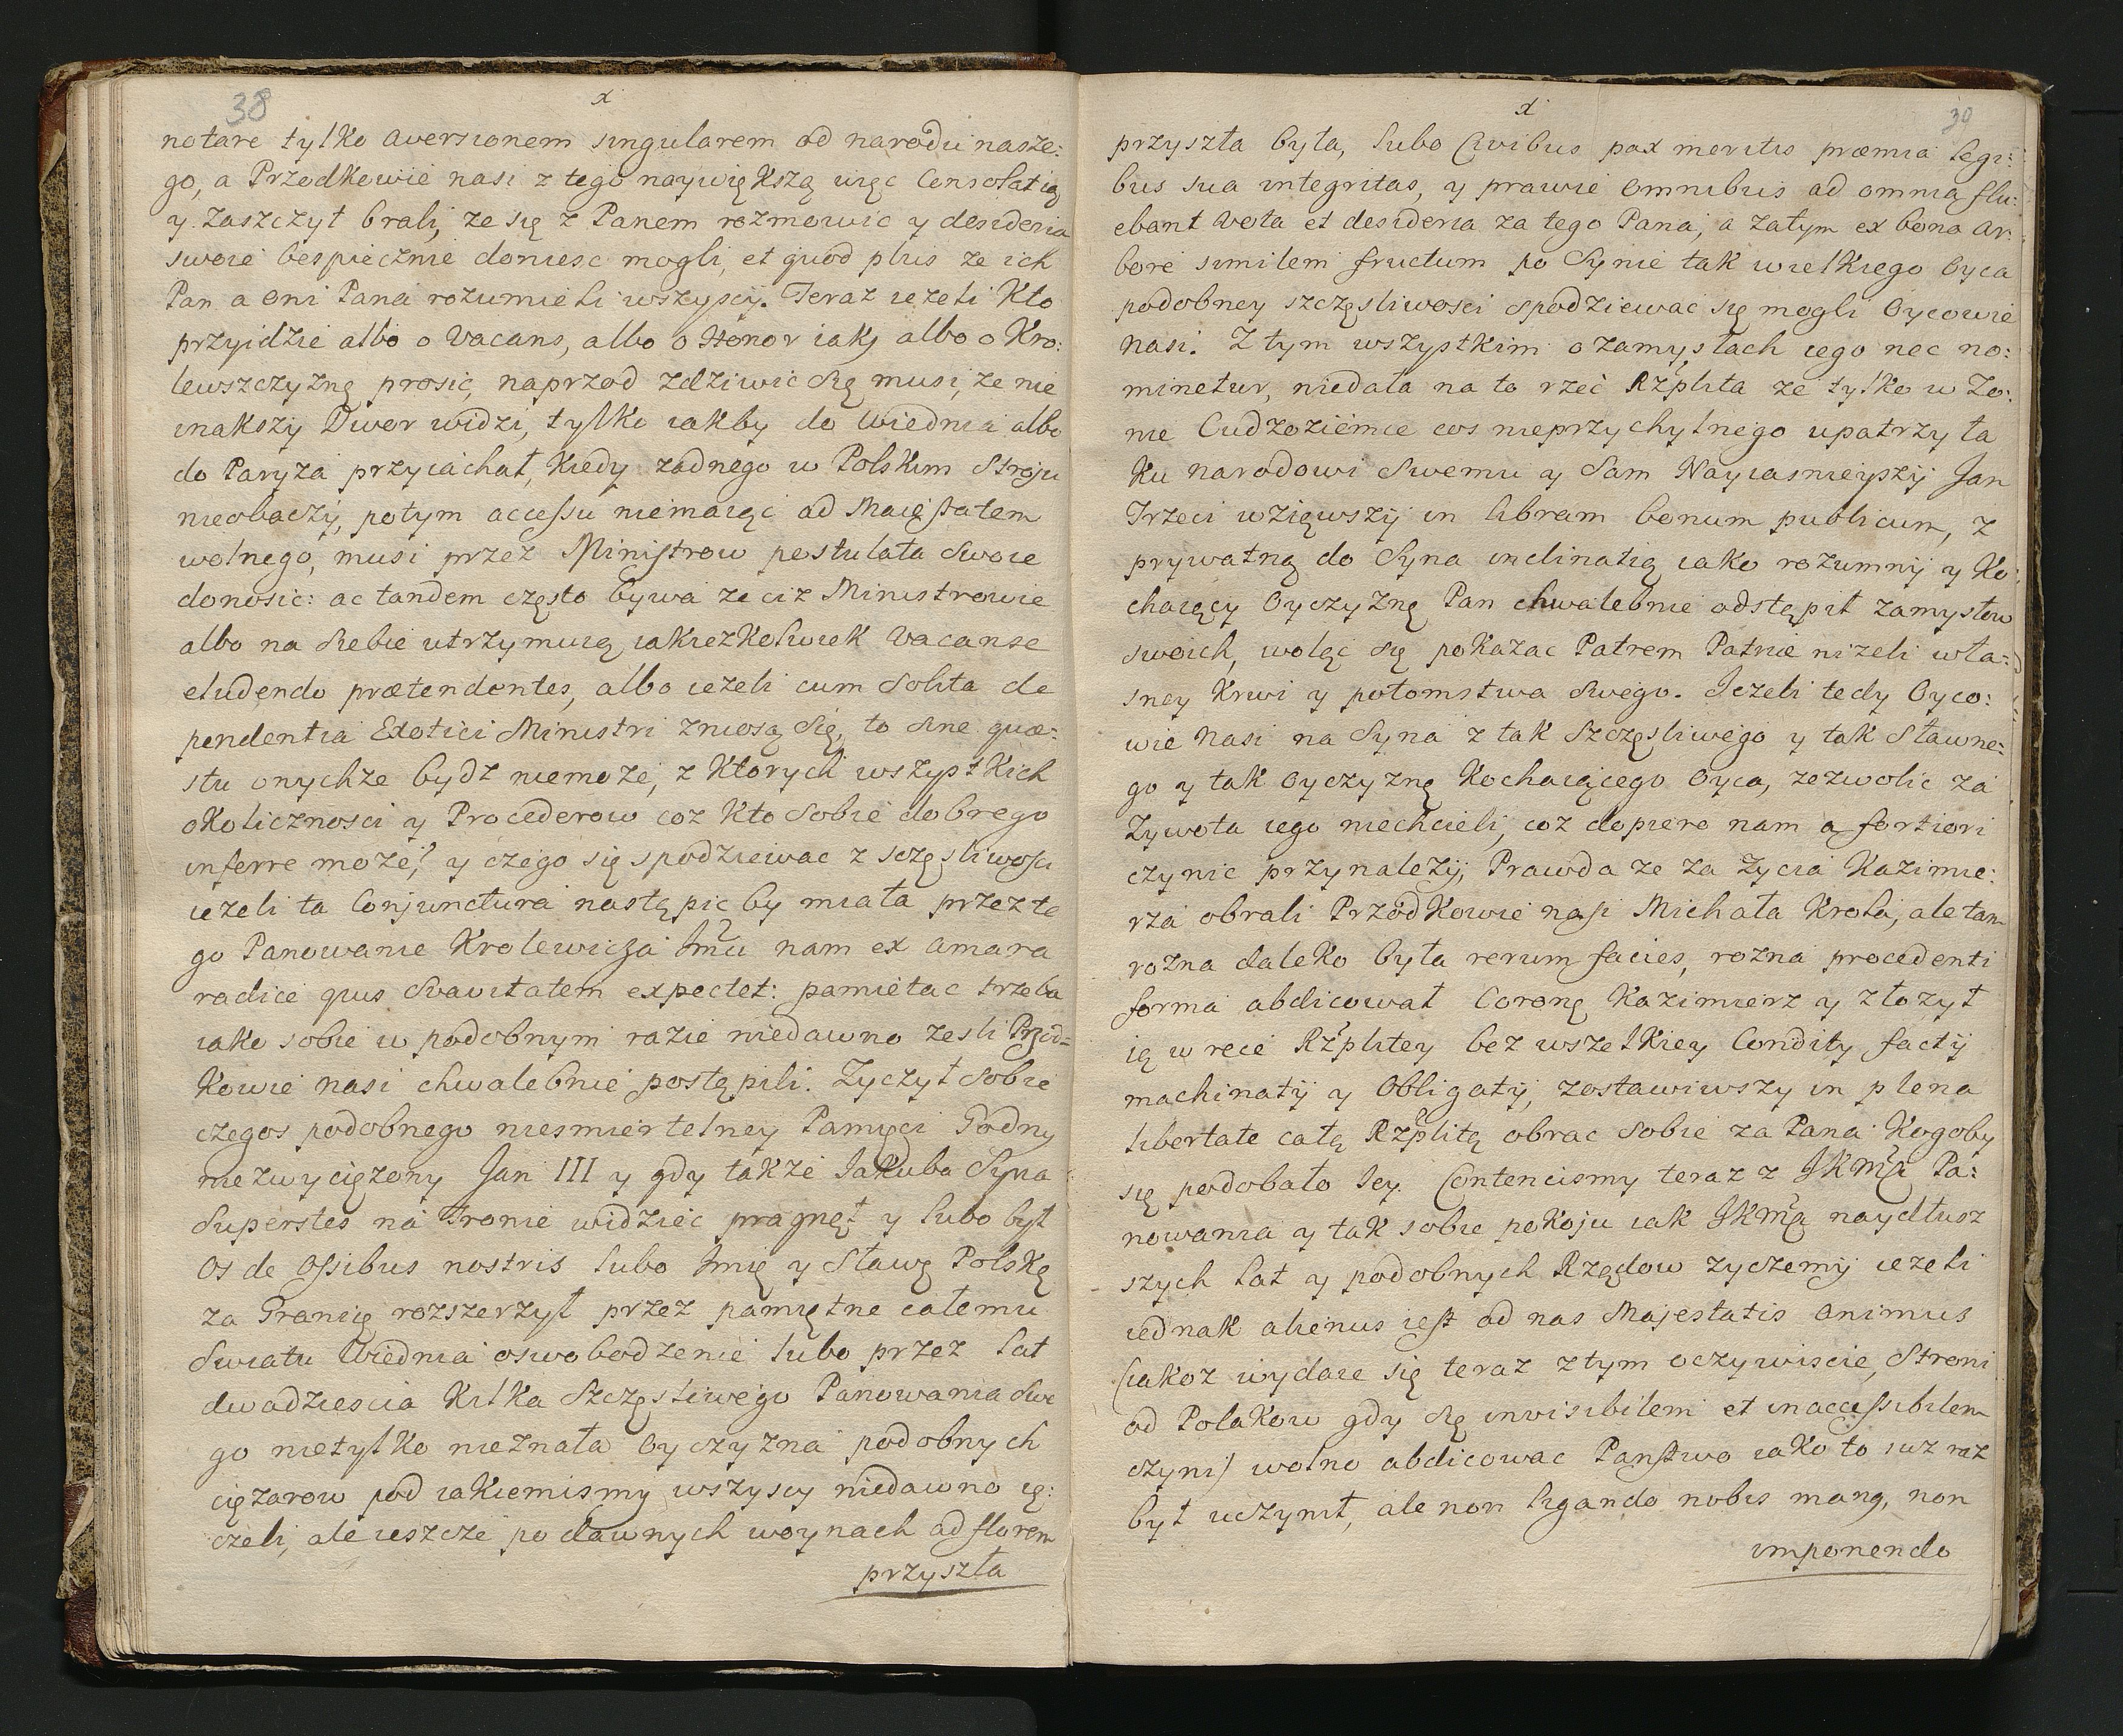 38
x
notare tylko aversionem singularem od narodu nasze:
go, a Przodkowie nasi z tego naywiększą więc Consolatią
y zaszczyt brali, ze się z Panem rozmowic y desideria
swoie bespiecznie doniesc mogli, et quod plus ze ich
Pan a oni Pana rozumieli wszyscy. Teraz iezeli Kto
przyidzie albo o Vacans, albo o Honor iaki albo o Kro:
lewszczyznę prosic, naprzod zdziwic się musi, ze nie
inakszy Dwor widzi, tylko iakby do Wiednia albo
do Paryza przyiachał, kiedy zadnego w Polskim Stroju
nieobaczy, potym accessu niemaiąc ad Maiestatem
wolnego, musi przez Ministrow postulata swoie
donosic: ac tandem często bywa ze ciz Ministrowie
albo na siebie utrzymuią iakiezkolwiek Vacanse
eludendo prætendentes, albo iezeli cum solita de
pendentia Exotici Ministri zniosą się, to sine quæ:
stu onychze bydz niemoze, z Ktorych wszystkich
okolicznosci y Procederow coz Kto sobie dobrego
inferre moze? y czego się spodziewac z sczęsliwosci
iezeli ta Conjunctura nastąpic by miała przez te
go Panowanie Krolewicza Jmci nam ex amara
radice quis suavitatem expectet: pamietac trzeba
iako sobie w podobnym razie niedawno zesli Przod=
kowie nasi chwalebnie postąpili. Zyczył sobie
czegos podobnego niesmiertelney Pamięci Godny
niezwycięzony Jan III y gdy takze Jakuba Syna
Superstes na Tronie widziec pragnął y lubo był
Os de Ossibus nostris lubo Jmię y Sławę Polską
za Granicę rozszerzył przez pamiętne całemu
Swiatu Wiednia oswobodzenie lubo przez lat
dwadziescia Kilka Szczęsliwego Panowania Swe
go nietylko nieznała Oyczyzna podobnych
cięzarow pod iakiemismy wszyscy niedawno ię:
czeli, ale ieszcze po dawnych woynach ad florem
przyszła
39
x
przyszła była, lubo Civibus pax meritis præmia legi:
bus sua integritas, y prawie omnibus ad omnia flu:
ebant vota et desideria za tego Pana, a zatym ex bona ar:
bore similem fructum po Synie tak wielkiego Oyca
podobney szczęsliwosci spodziewac się mogli Oycowie
nasi. Z tym wszystkim o zamysłach iego nec no:
minetur, niedała na to rzec Rzplita ze tylko w Zo:
nie Cudzoziemce cos nieprzychylnego upatrzyła
Ku narodowi Swemu y Sam Nayiasnieyszy Jan
Trzeci wziąwszy in libram bonum publicum, z
prywatną do Syna inclinatią iako rozumny y Ko:
chaiący Oyczyznę Pan chwalebnie odstąpił zamysłow
swoich, woląc się pokazac Patrem Patriæ nizeli wła=
sney Krwi y potomstwa swego. Jezeli tedy Oyco:
wie nasi na Syna z tak szczęsliwego y tak Sławne:
go y tak Oyczyznę Kochaiącego Oyca, zezwolic za
Zywota iego niechcieli, coz dopiero nam a fortiori
czynic przynalezy, Prawda ze za Zycia Kazimie:
rza obrali Przodkowie nasi Michała Krola, ale tam
rozna daleko była rerum facies, rozna procedenti
forma abdicował Coronę Kazimierz y złozył
ią w ręce Rzplitey bez wszelkiey Condity, facty
machinaty y Obligaty, zostawiwszy in plena
libertate całą Rzplitę obrac sobie za Pana Kogoby
się podobało Jey. Contencismy teraz z JKMci Pa:
nowania y tak sobie pokoju iak JKMci naydłusz
szych lat y podobnych Rządow zyczemy iezeli
iednak alienus iest od nas Majestatis animus
(iakoz wydaie się teraz z tym oczywiscie, Stroni
od Polakow gdy się invisibilem et inaccessibilem
czyni) wolno abdicowac Panstwo iako to iuz raz
był uczynił, ale non ligando nobis manq, non
imponendo